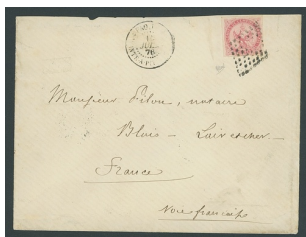 Monsieur Pilon, notaire
Blois - Loir et cher -
France
Voie française